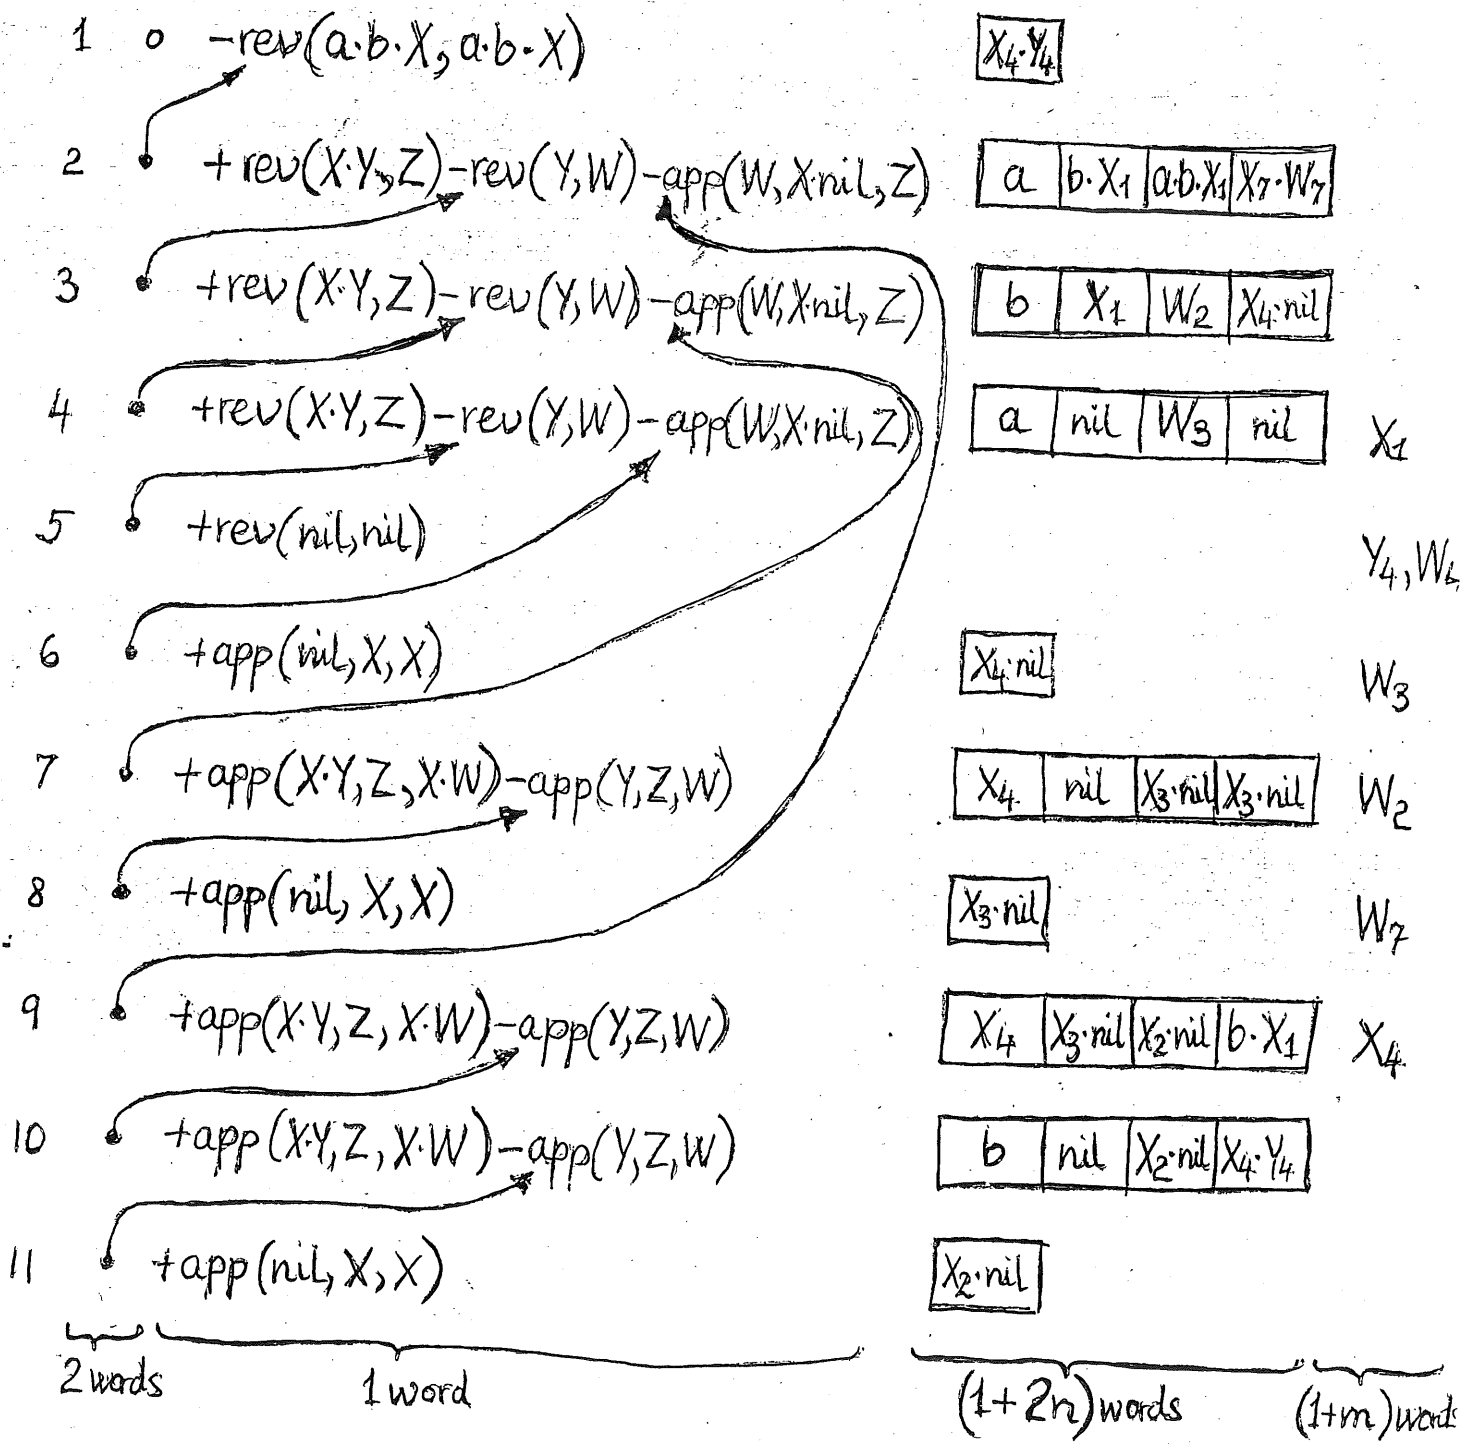 1 o -rev(a·b·X, a·b·X) X4·Y4
2 +rev(X·Y,Z)-rev(Y,W)-app(W,X·nil,Z) a b·X1 a·b·X1 X7·W7
3 +rev(X·Y,Z)-rev(Y,W)-app(W,X·nil,Z) b X1 W2 X4·nil
4 +rev(X·Y,Z)-rev(Y,W)-app(W,X·nil,Z) a nil W3 nil X1
5 +rev(nil,nil) Y4,W4
6 +app(nil,X,X) X4·nil W3
7 +app(X·Y,Z,X·W)-app(Y,Z,W) X4 nil X3·nil X3·nil W2
8 +app(nil,X,X) X3·nil W7
9 +app(X·Y,Z,X·W)-app(Y,Z,W) X4 X3·nil X2·nil b·X1 X4
10 +app(X·Y,Z,X·W)-app(Y,Z,W) b nil X2·nil X4·Y4
11 +app(nil,X,X) X2·nil
2 words 1 word (1+2n)words (1+m)words